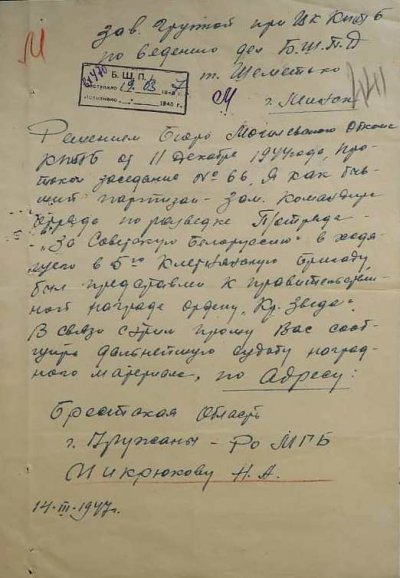 М
Зав. группой при ЦК КП(б)Б
по ведению дел Б.Ш.П.Д
т. Шеметько
Б. Ш. П. Д.
Поступило 19. 03 194
Исполнено 1945 г.
М
г. Минск
Решением Бюро Могилевского Обкома
КП(б)Б от 11 декабря 1944 года, Про-
токол заседания № 66. Я как быв-
ший партизан - Зам. Командира
отряда по разведке Потряда -
- "За Советскую Белоруссию" входя-
щего в 5ую Клетнянскую бригаду,
был представлен к правительствен-
ной награде ордену "Кр. Звезда".
В связи с этим прошу Вас сооб-
щить дальнейшую судьбу наград-
ного материала, по Адресу:
Брестская область
г. Пружаны - Ро МГБ
Микрюкову Н. А.
14-III-1947г.